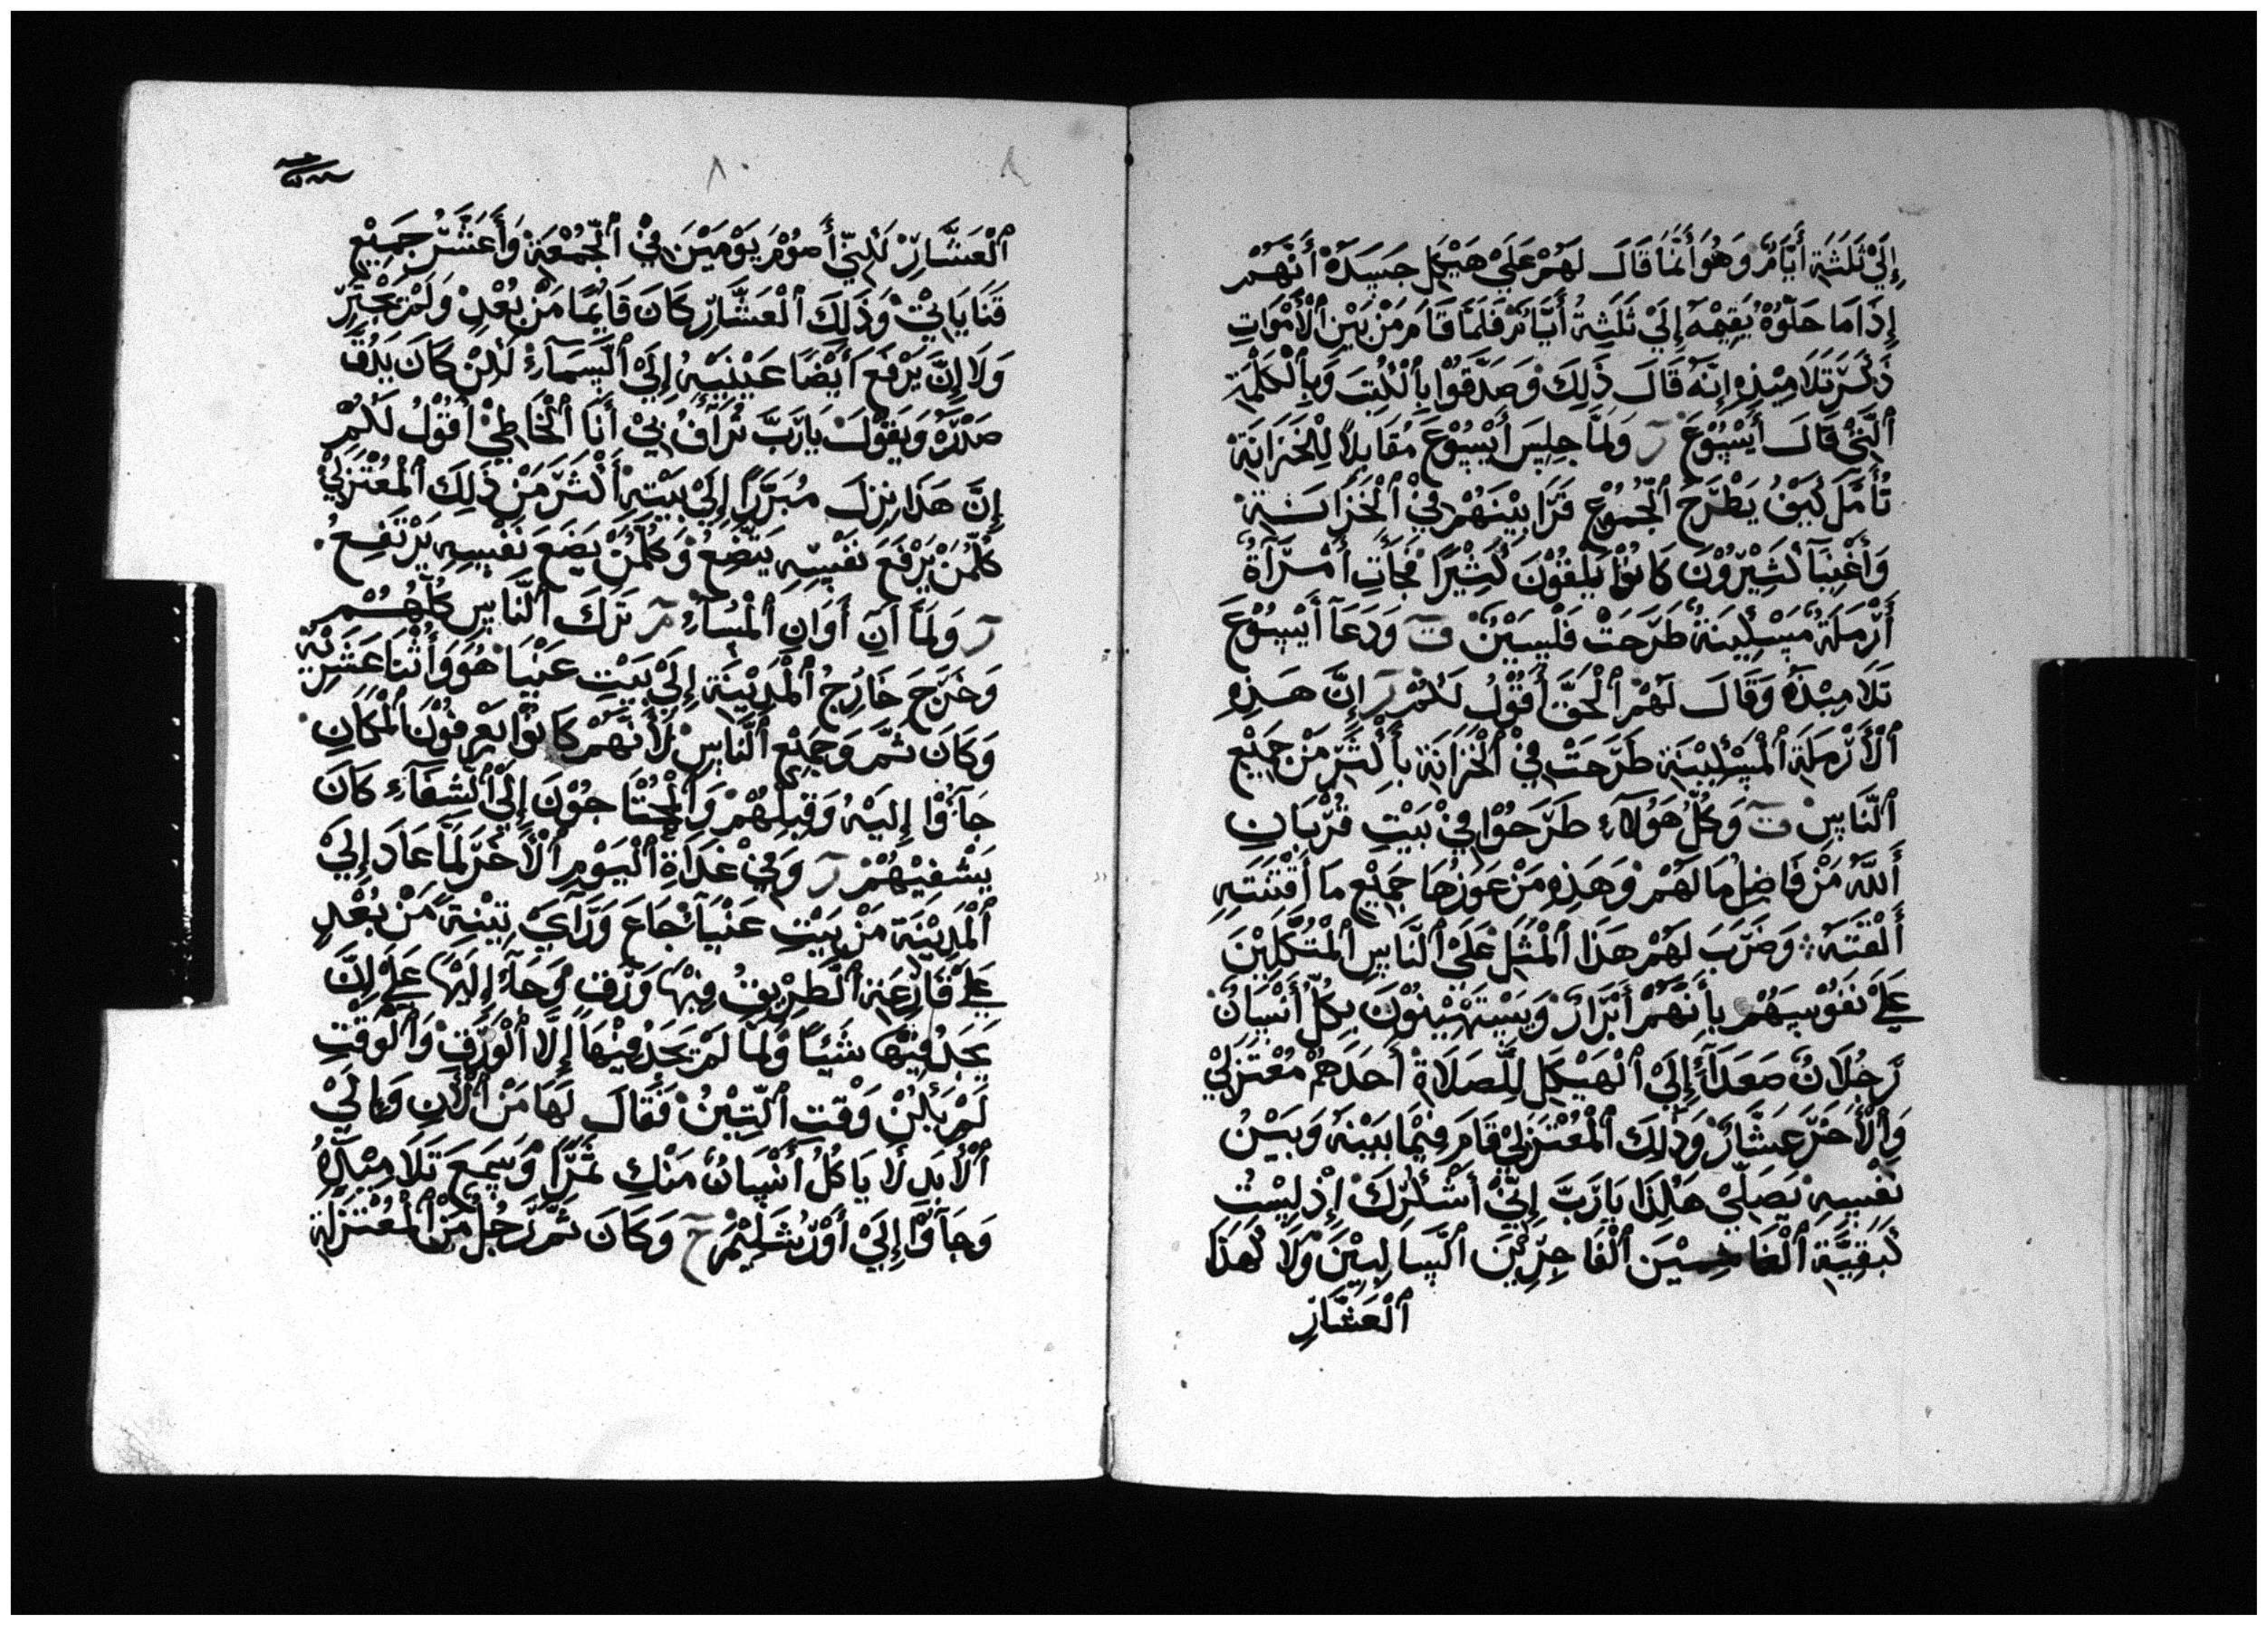 إِلَيْ ثَلَثَةِ أَيَّامٌ وَهُوَ أَنَّمَا قَالَ لَهُمْ عَلَيْ هَيْكَلِ جَسَدَهْ أَنَّهُمْ
إِذَا مَا حَلّوُهْ يُقِيمْهُ إِلَيْ ثَلَثِةُ أَيَّامْ فَلَمَّا قَامَ مَنْ بَيْنِ ٱلْأَمْوَاتِ
ذَكَرَ تَلَامِيْذِهِ إِنَّهُ قَالَ ذَلِكَ وَصَدَّقَوُا بِٱلْكُتِبَ وَبِٱلْكَلْمَةِ
ٱلَّتِيْ قَالَ أَيْسُوْعَ ر وَلَمَّا جِلِسَ أَيْسُوْعَ مُقَابِلاً لِلْخَزَانَةِ
تُأَمَّلَ كَيَفْ يَطْرَحَ ٱلْجُمُوْعِ قَرَابِيْنَهُمْ فِيْ ٱلْخَزَانَةِ
وَأَغْنِيَآ كَثِيْرُوْنَ كَانُوْا يَلْقُوْنَ كَثِيْرًا فَجَأَتِ أَمْرَآةٌ
أَرْمَلَةٌ مَسْكِيْنَةٌ طَرَحَتْ فَلْسِيْنُ ت وَدَعَآ أَيْسُوْعَ
تَلَامِيْذَهُ وَقَالَ لَهُمْ ٱلْحَقَّ أَقُوْلُ لَكُمْ ر إِنَّ هَذِهِ
ٱلْأَرْمَلَةِ ٱلْمَسْكِيْنِةِ طَرَحَتْ فِيْ ٱلْخَزَانَةِ بِأَكْثَرِ مَنْ جَمِيْعِ
ٱلنَّاسِ ت وَكُلُّ هَوُلَآءِ طَرَحَوُا فِيْ بَيْتِ قُرْبَانِ
أَللَّهُ مَنْ فَاضِلِ مَا لَهُمْ وَهَذِهِ مَنْ عَوَزِهَا جَمِيْعِ مَا أَقْتَنَتِهِ
أَلْقَتَهُ وَضَرَبَ لَهُمْ هَذَا ٱلْمَثَلِ عَلَيْ ٱلنَّاسِ ٱلْمُتَّكِلِيْنَ
عَلَيْ نَفُوْسِهُمْ بِأَنَّهُمْ أَبْرَارٌ وَيَسْتَهِيْنُوْنَ بِكُلِّ أَنْسَانٌ
رَجُلَانٌ صَعَدَآءْ إِلَيْ ٱلْهَيْكَلِ لِلَّصَلَاةِ أَحَدَهُمْ مُعْتَزَلِيْ
وَٱلْأَخَرَ عَشَّارٌ وَذَلِكَ ٱلْمُعْتَزَلِيْ قَامَ فِيْمَا بَيْنَهُ وَبَيْنَ
نَفْسِهِ يُصَلِّيْ هَكَذَا يَارَبَّ إِنِّيْ أَشْكُرَكَ إِذْ لِسْتُ
كَبَقِيَّةِ ٱلْنَاسِ ٱلْفَاجِرِيْنَ ٱلسَالِبِيْنَ وَلَا كَهَذَا
ٱلْعَشَّارِ
٨٠
ٱلْعَشَّارِ لَكِنِّي أَصُوْمُ يَوْمَيْنِ فِيْ ٱلْجُمْعَةِ وَأَعَشِّرُ جَمِيْعِ
قَنَايَايْ وَذَلِكَ ٱلْعَشَّارِ كَانَ قَايِمًا مَنْ بُعْدِ وَلَمْ يَجْتَرِ
وَلَا إِنَّ يَرْفَعَ أَيْضًا عَيْنَيْهِ إِلَيْ ٱلسَّمَآءِ لَكِنْ كَانَ يَدُقَّ
صَدْرَهُ وَيَقُوْلَ يَارَبَّ تُرَآفُ بِيْ أَنَا ٱلْخَاطِيْ أَقُوْلُ لَكُمْ
إِنَّ هَذَا نِزِلَ مُبَرَّرًا إِلَيْ بَيْتِهِ أَكْثَرَ مَنْ ذَلِكَ ٱلْمُعْتَزَلِيْ
كُلَّمُنْ يَرْفَعَ نَفْسِهِ يَتَّضِعُ وَكُلَّمَنْ يَضَعَ نَفْسِهِ يَرْتَفِعُ
ر وَلَمَّا آنَ أَوَانِ ٱلْمَسَآءِ مر تَرَكَ ٱلنَّاسِ كُلُّهُمْ
وَخَرَجَ خَارِجُ ٱلْمَدِيْنَةِ إِلَيْ بَيْتِ عَنْيَا هُوَ وَأَثْنَا عَشَرِتِهِ
وَكَانَ ثَمَّ وَجَمِيْعِ ٱلنَّاسِ لَأَنَّهُمْ كَانُوْا يَعْرِفُوْنَ ٱلْمَكَانِ
جَآؤُا إِلَيْهِ وَقَبِلَهُمْ وَٱلْمُحْتَاجُوْنَ إِلَيْ ٱلْشِفَآءِ كَانَ
يَشْفِيْهُمْ ر وَفِيْ غَدَاةِ ٱلْيَوْمِ ٱلْأَخَرَ لَمَّا عَادَ إِلَيْ
ٱلْمَدِيْنَةِ مَنْ بَيْتِ عَنْيَآ جَاعَ وَرَآيَ تِيْنِةً مَنْ بُعْدِ
عَلَيْ قَارِعَةِ ٱلْطَرِيْقِ فِيْهَا وَرَقٌ وَجَآءَ إِلَيْهَا عَلَيْ إِنَّ
يَجَدُ فِيْهَا شَيْئًا وَلَمَّا لَمْ يَجَدْ فِيْهَا إِلَّا ٱلْوَرَقِ وَٱلْوَقْتِ
لَمْ يَكُنْ وَقْتِ ٱلتِيْنُ فَقَالَ لَهَا مَنْ ٱلْأَنِ وَإِلَيْ
ٱلْأَبَدِ لَا يَاكُلُ أَنْسَانٌ مَنْكِ ثَمَرًا وَسَمِعَ تَلَامِيْذَهُ
وَجَآؤُا إِلَيْ أَوْرُشَلِيْمَ ح وَكَانَ ثَمَّ رَجُلٌ مَنْ ٱلْمُعْتَزَلَةِ